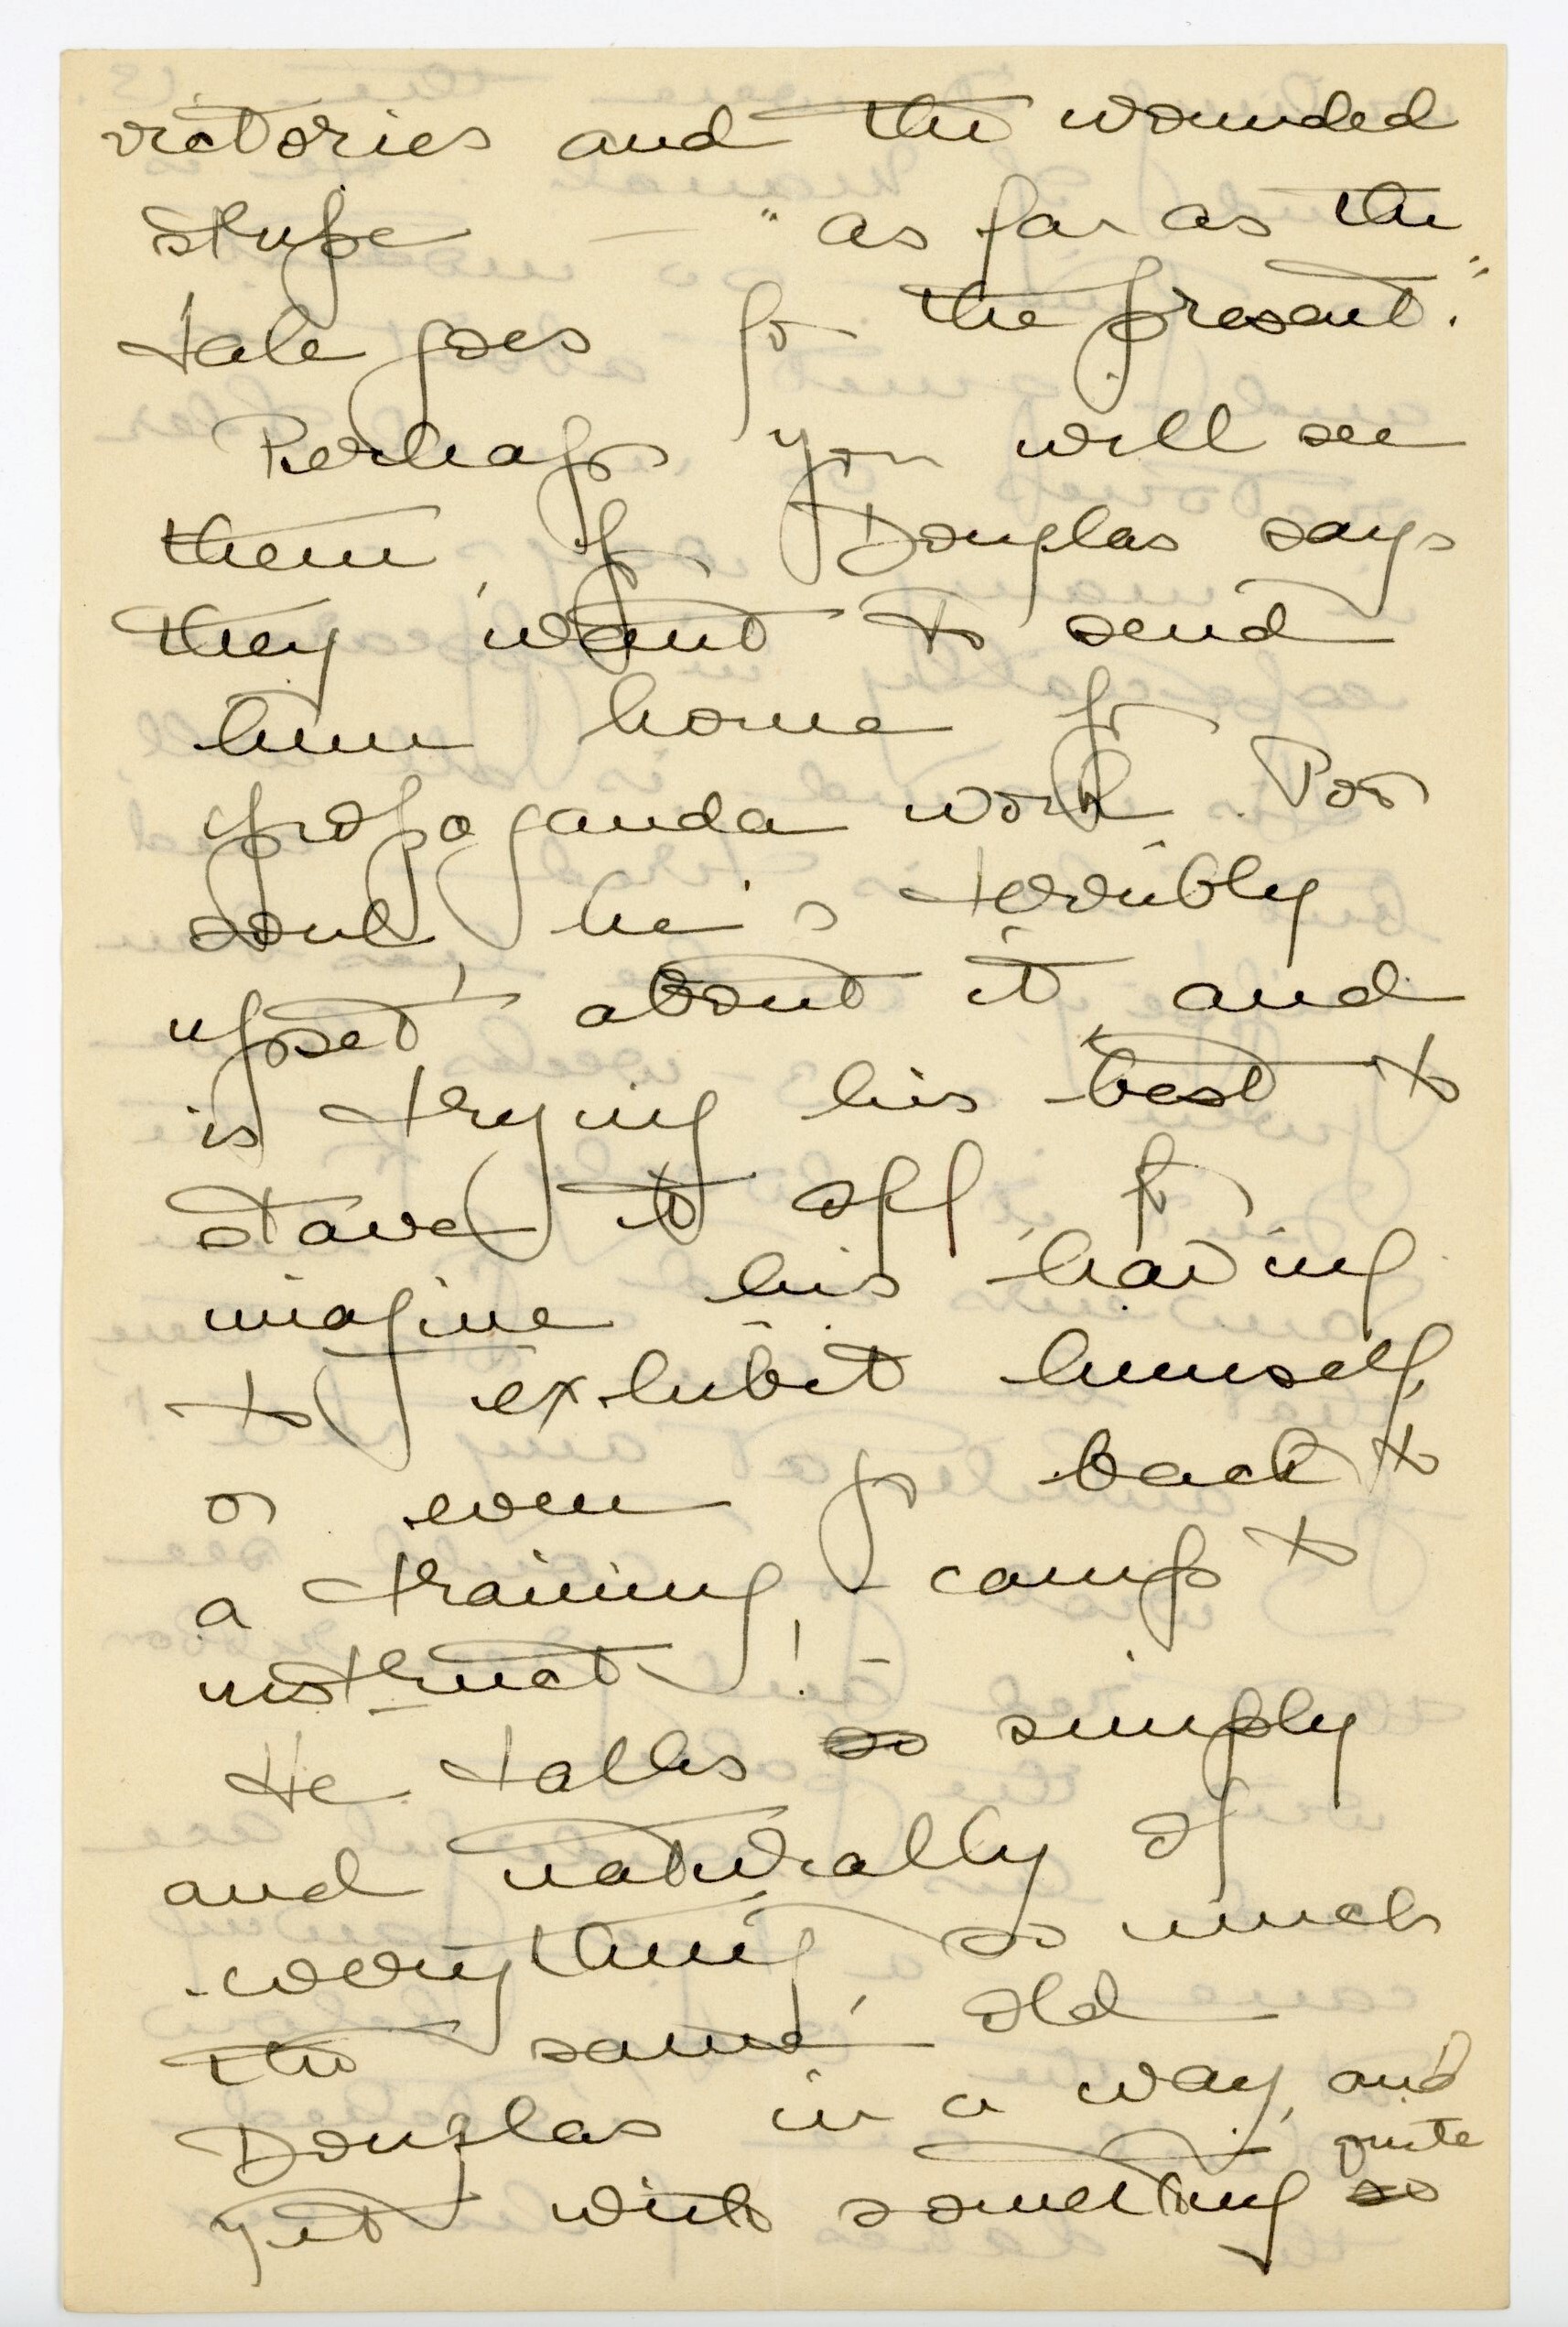 victories and the wounded
stripe — "as far as the
tale goes for the present."
Perhaps you will see
them, for Douglas says
they want to send
him home for
propaganda work. Poor
soul, he's terribly
upset about it and
is trying his best to
stave it off, for
imagine his having
to exhibit himself,
or even go back to
a training-camp to
instruct!
He talks so simply
and naturally of
everything, so much
the same old
Douglas in a way, and
yet with something so quite